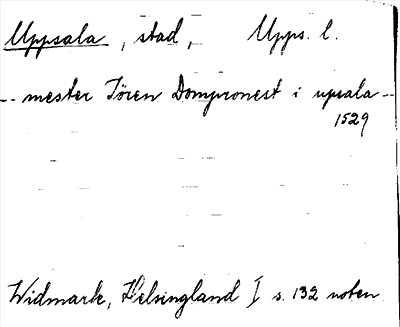 Uppsala, stad, Upps. l.
-- mester Jören Dompronest i upsala --
1529
Widmark, Helsingland I s. 132 noten